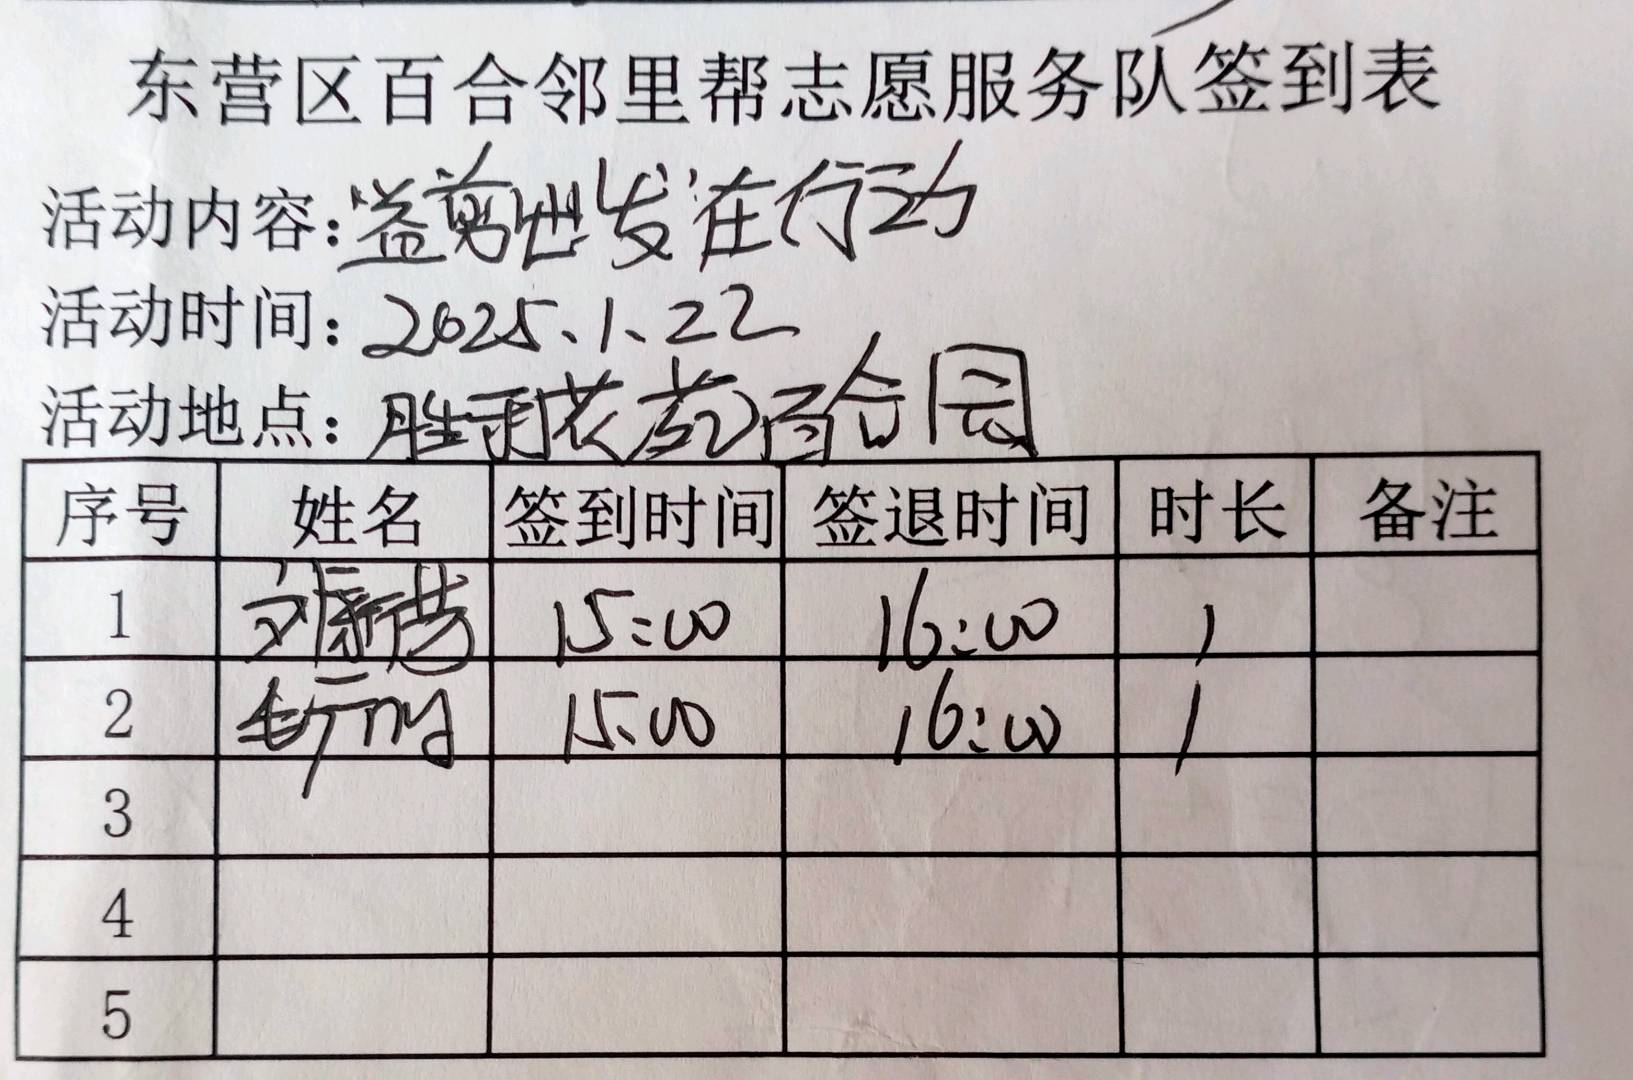 东营区百合邻里帮志愿服务队签到表
活动内容:益剪世发在行动
活动时间:2025、1、22
活动地点:胜利花苑百合园
序号 姓名 签到时间 签退时间 时长 备注
1 15:00 16:00 1
2 15:00 16:00 1
3
4
5